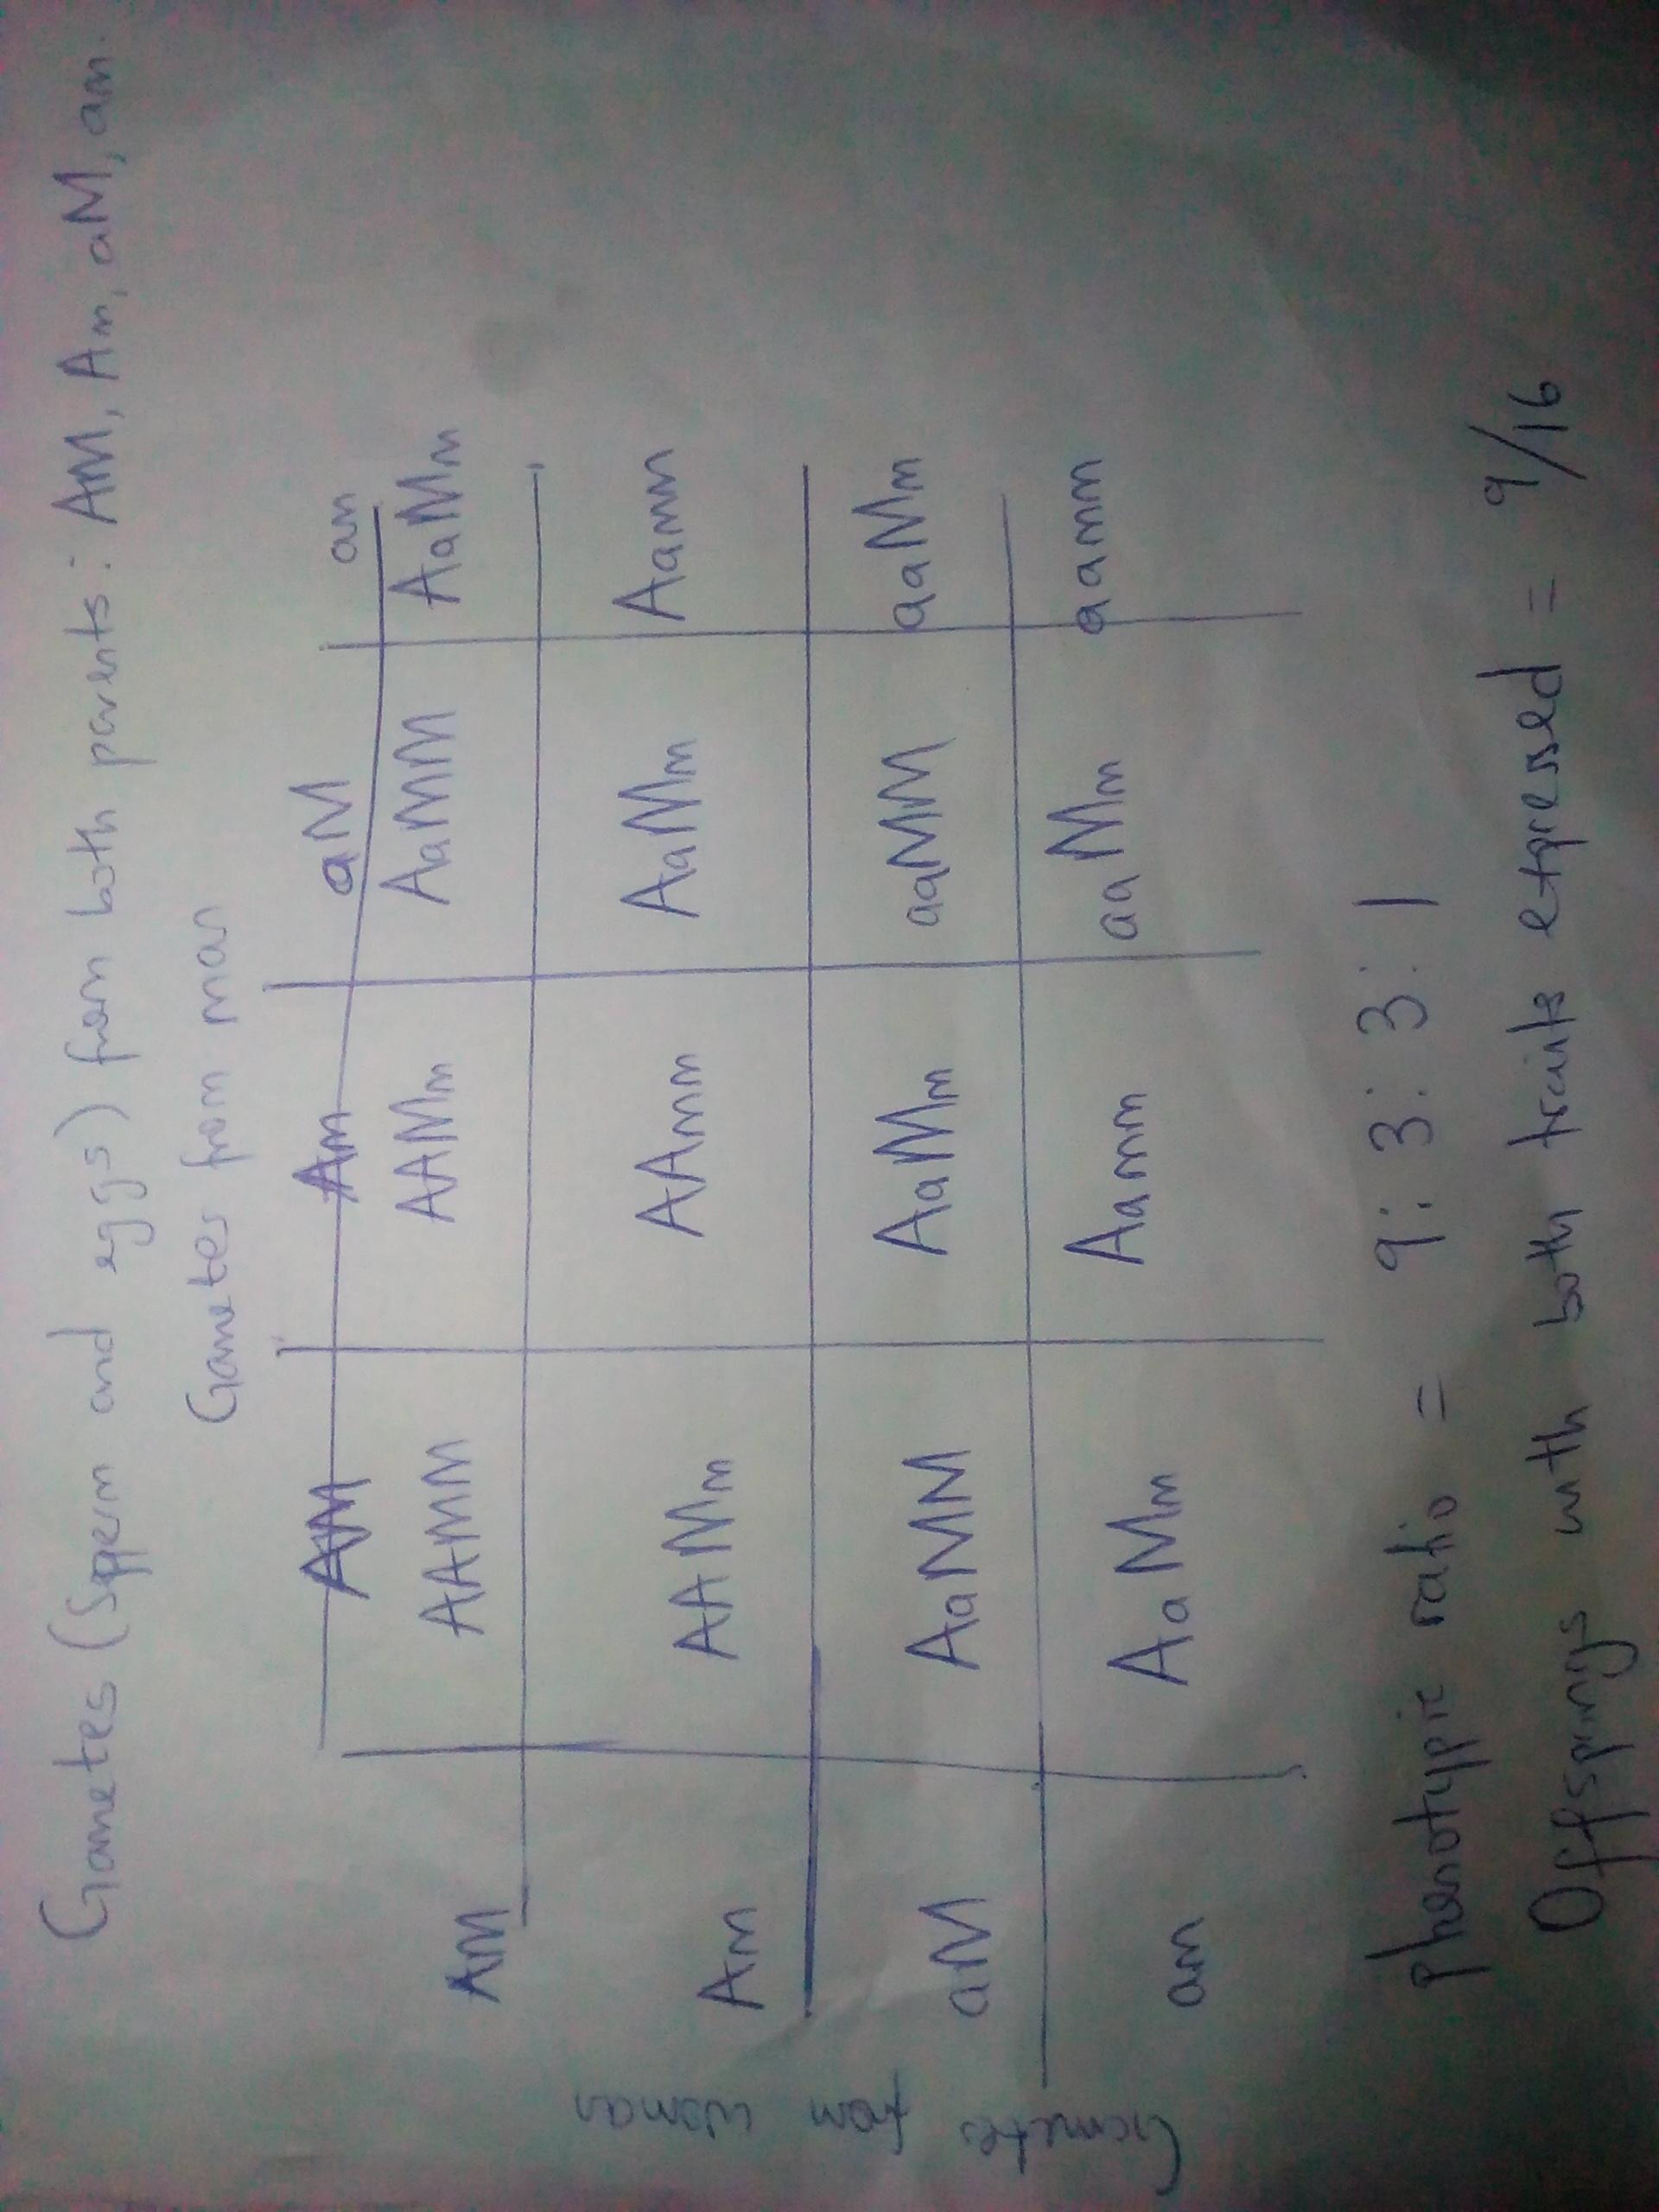 Gametes (Sperm and eggs) from both parents: AM, Am, aM, am.
Gametes from man
AM Am aM am
AM AAMM AAMm AaMM AaMm
Am AAMm AAmm AaMm Aamm
aM AaMM AaMm aaMM aaMm
am AaMm Aamm aaMm aamm
Gametes from woman
phenotypic ratio = 9:3:3:1
Offsprings with both traits expressed = 9/16